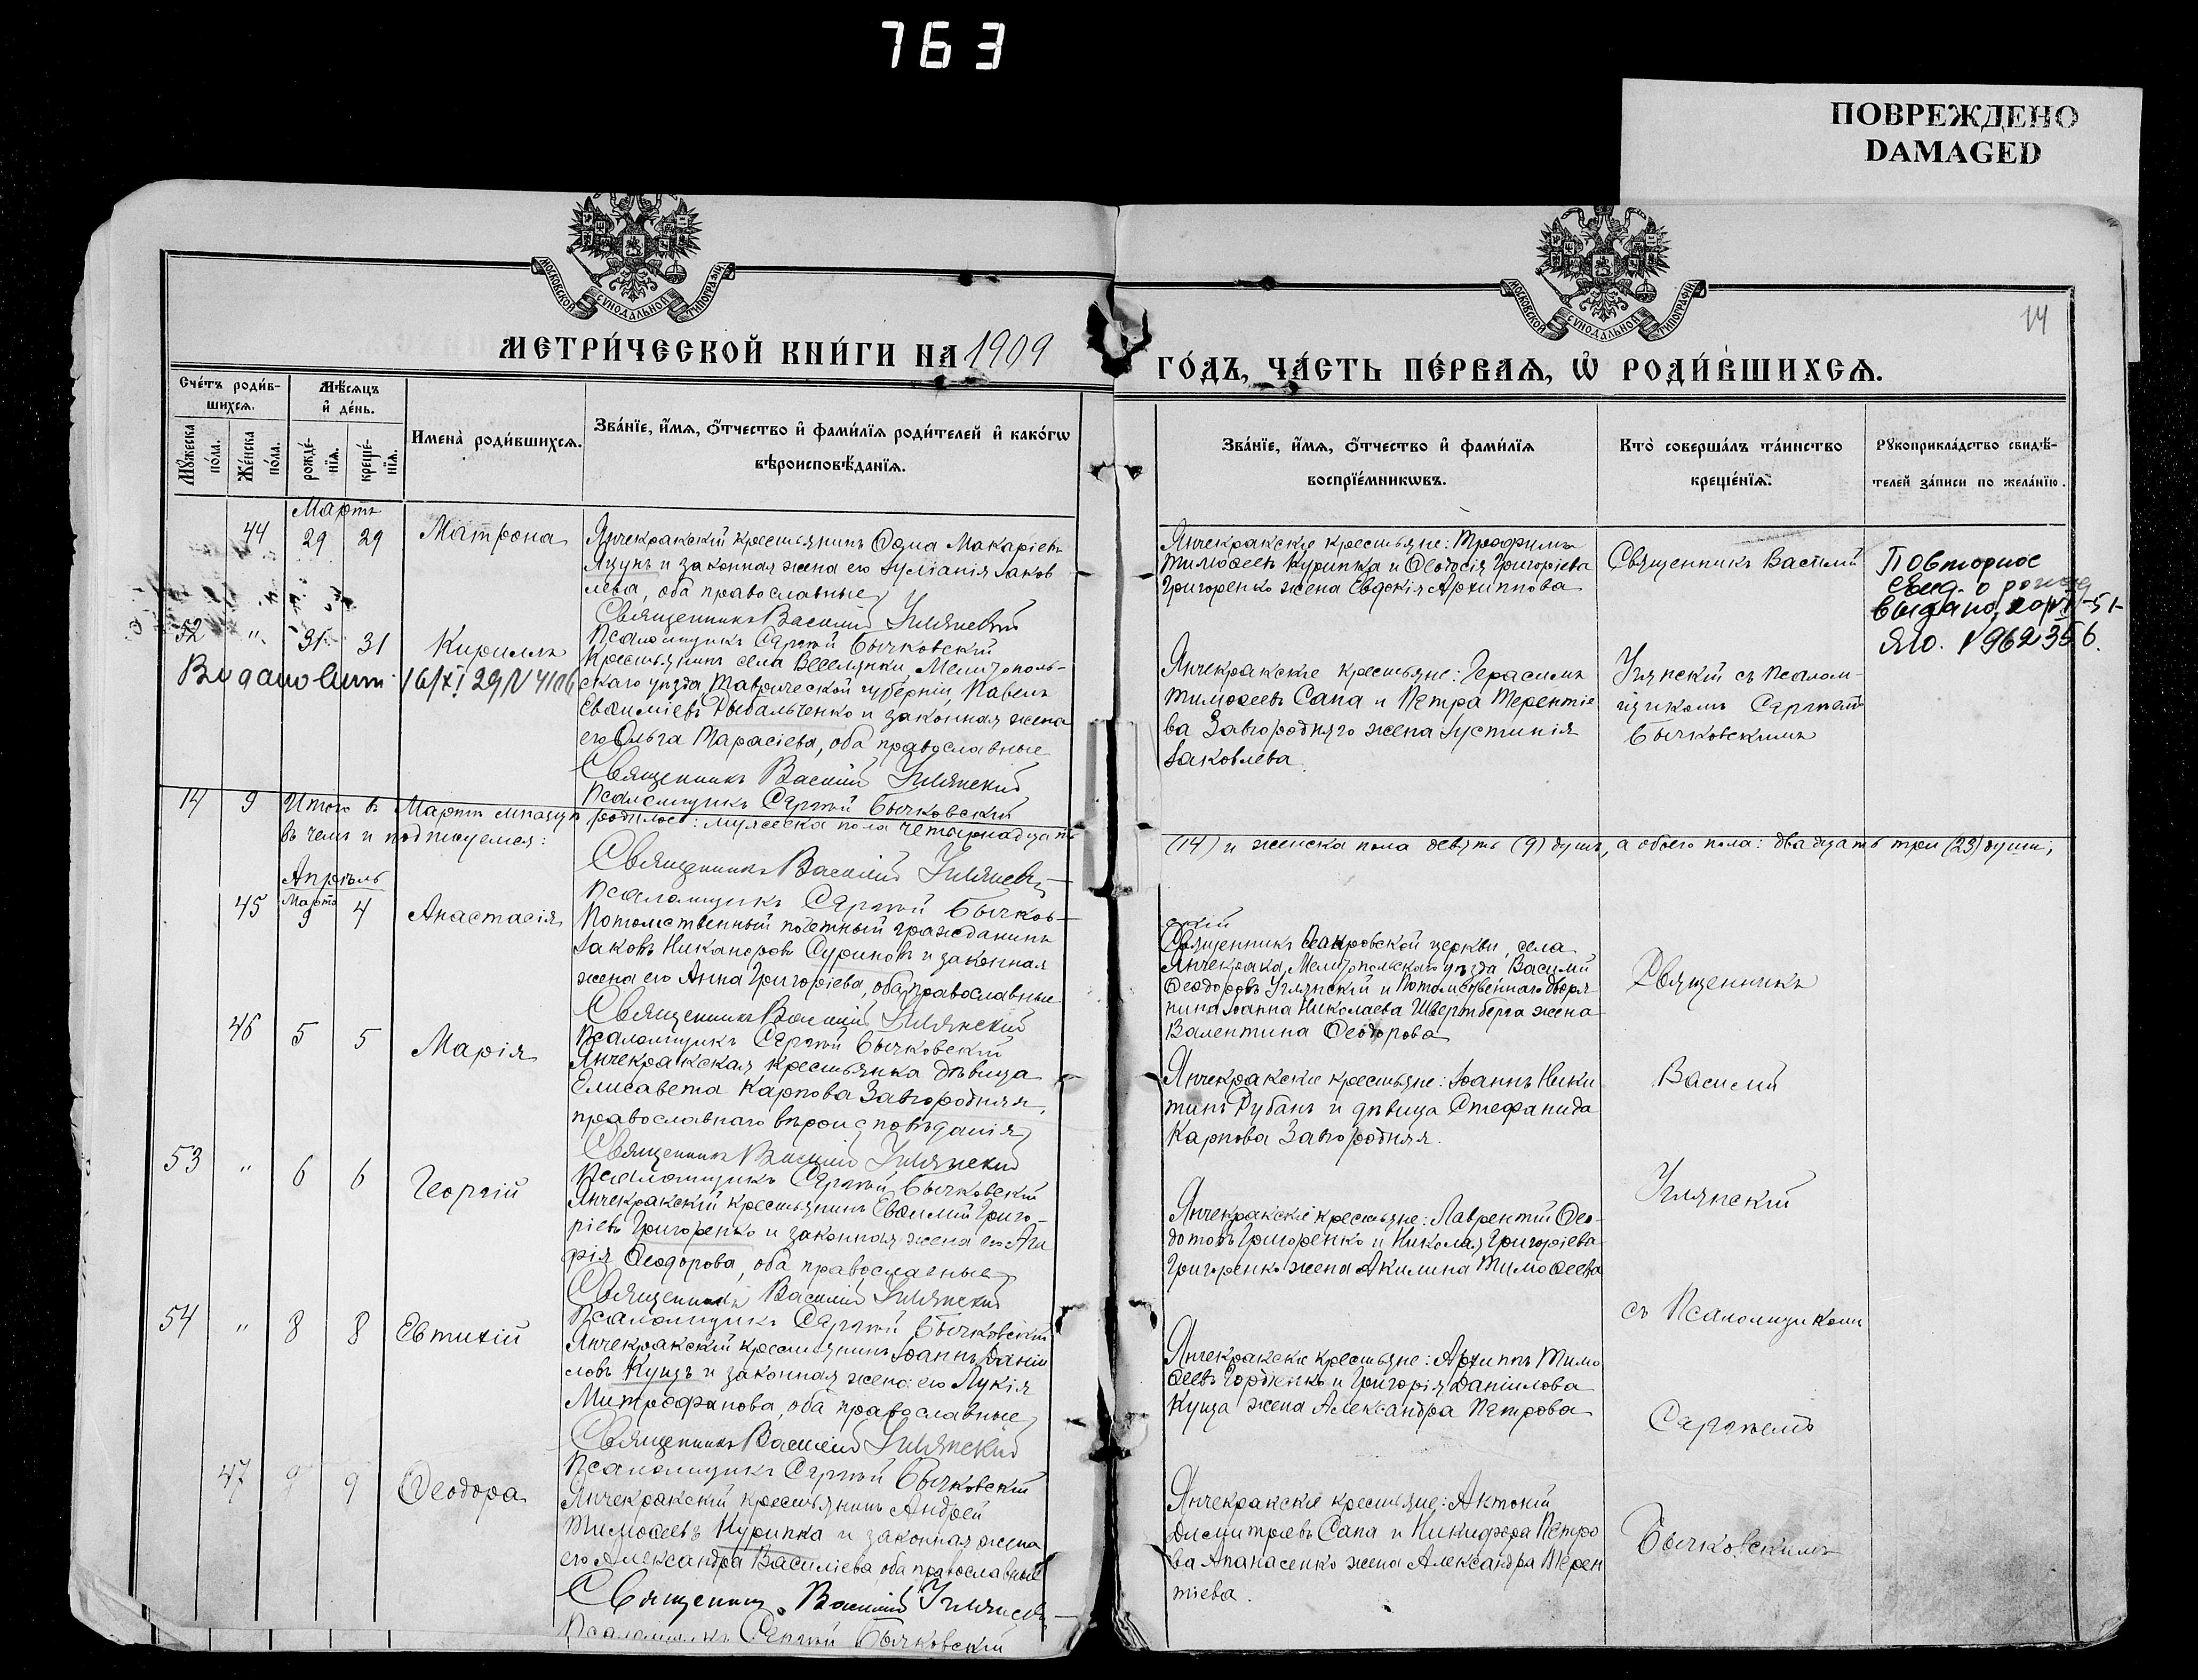 763
ПОВРЕЖДЕНО
DAMAGED
МОСКОВСКОЙ СѴНОДАЛЬНОЙ ТИПОГРАФІИ
МОСКОВСКОЙ СѴНОДАЛЬНОЙ ТИПОГРАФІИ
14
МЕТРИ́ЧЕСКОЙ КНИ́ГИ НА 1909
ГО́ДЪ, ЧА́СТЬ ПЕ́РВАѦ, Ѡ҆ РОДИ́ВШИХСѦ.
Сче́тъ роди́в-
шихсѧ.
Мꙋ́жеска
по́ла.
Же́нска
по́ла.
Мѣ́сѧцъ
и҆ де́нь.
рожде́-
нїѧ.
креще́-
нїѧ.
Имена̀ роди́вшихсѧ.
Зва́нїе, и҆́мѧ, ѻ҆́тчество и҆ фами́лїѧ роди́телей и҆ како́гѡ
вѣроисповѣ́данїѧ.
Зва́нїе, и҆́мѧ, ѻ҆́тчество и҆ фами́лїѧ
воспрїе́мникѡвъ.
Кто̀ соверша́лъ та́инство
креще́нїѧ.
Рꙋкоприкла́дство свидѣ́-
телей за́писи по жела́нїю.
Мартъ
44 29 29 Матрона
Янчекракскій крестьянинъ Ѳома Макаріевъ
Яцунъ и законная жена его Іуліанія Іаков
лева, оба православные
Священникъ Василій Углянскій
Псаломщикъ Сергѣй Бычковскій
Янчекракскіе крестьяне: Трофимъ
Тимоѳеевъ Курипка и Ѳеодосія Григоріева
Григоренко жена Евдокія Архиппова
Священникъ Василій
Повторное
свид. о рожд
выдано
ЯЮ. № 962356.
52 " 31 31 Кириллъ
Крестьянинъ села Веселянки, Мелитополь-
скаго уѣзда, Таврической губерніи, Павелъ
Евѳиміевъ Рыбальченко и законная жена
его Ольга Тарасіева, оба православные
Священникъ Василій Углянскій
Псаломщикъ Сергѣй Бычковскій
16/XI 29 N 4106
Янчекракскіе крестьяне: Герасимъ
Тимоѳеевъ Сапа и Петра Терентіе
ва Завгородняго жена Іустинія
Іаковлева.
Углянскій съ Псалом-
щикомъ Сергѣемъ
Бычковскимъ
14 9 Итого въ Мартѣ мѣсяцѣ родилось: мужеска пола четырнадцать
(14) и женска пола девять (9) душъ, а обоего пола: двадцать три (23) души,
въ чемъ и подписуемся:
Священникъ Василій Углянскій
Псаломщикъ Сергѣй Бычков-
скій
Апрѣль
Марта
45 9 4 Анастасія
Потомственный почетный гражданинъ
Іаковъ Никаноровъ Суриновъ и законная
жена его Анна Григоріева, оба православные
Священникъ Василій Углянскій
Псаломщикъ Сергѣй Бычковскій
Священникъ Покровской церкви, села
Янчекрака, Мелитопольскаго уѣзда, Василій
Ѳеодоровъ Углянскій и Потомственнаго дворя
нина Іоанна Николаева Швертберга жена
Валентина Ѳеодорова
Священникъ
46 5 5 Марія
Янчекракская крестьянка дѣвица
Елисавета Карпова Завгородняя,
православнаго вѣроисповѣданія
Священникъ Василій Углянскій
Псаломщикъ Сергѣй Бычковскій
Янчекракскіе крестьяне: Іоаннъ Ники
тинъ Рубанъ и дѣвица Стефанида
Карпова Завгородняя.
Василій
53 " 6 6 Георгій
Янчекракскій крестьянинъ Евѳимій Григо-
ріевъ Григоренко и законная жена его Ага
фія Ѳеодорова, оба православные
Священникъ Василій Углянскій
Псаломщикъ Сергѣй Бычковскій
Янчекракскіе крестьяне: Лаврентій Ѳео-
дотовъ Григоренко и Николая Григоріева
Григоренко жена Акилина Тимоѳеева
Углянскій
54 " 8 8 Евтихій
Янчекракскій крестьянинъ Іоаннъ Даніи
ловъ Куцъ и законная жена его Лукія
Митрофанова, оба православные
Священникъ Василій Углянскій
Псаломщикъ Сергѣй Бычковскій
Янчекракскіе крестьяне: Архиппъ Тимо
ѳеевъ Гордіенко и Григорія Даніилова
Куца жена Александра Петрова
съ Псаломщикомъ
Сергѣемъ
47 9 9 Ѳеодора
Янчекракскій крестьянинъ Андрей
Тимоѳеевъ Курипка и законная жена
его Александра Василіева, оба православные
Священникъ Василій Углянскій
Псаломщикъ Сергѣй Бычковскій
Янчекракскіе крестьяне: Антоній
Димитріевъ Сапа и Никифора Петро
ва Апанасенко жена Александра Терен
тіева.
Бычковскимъ